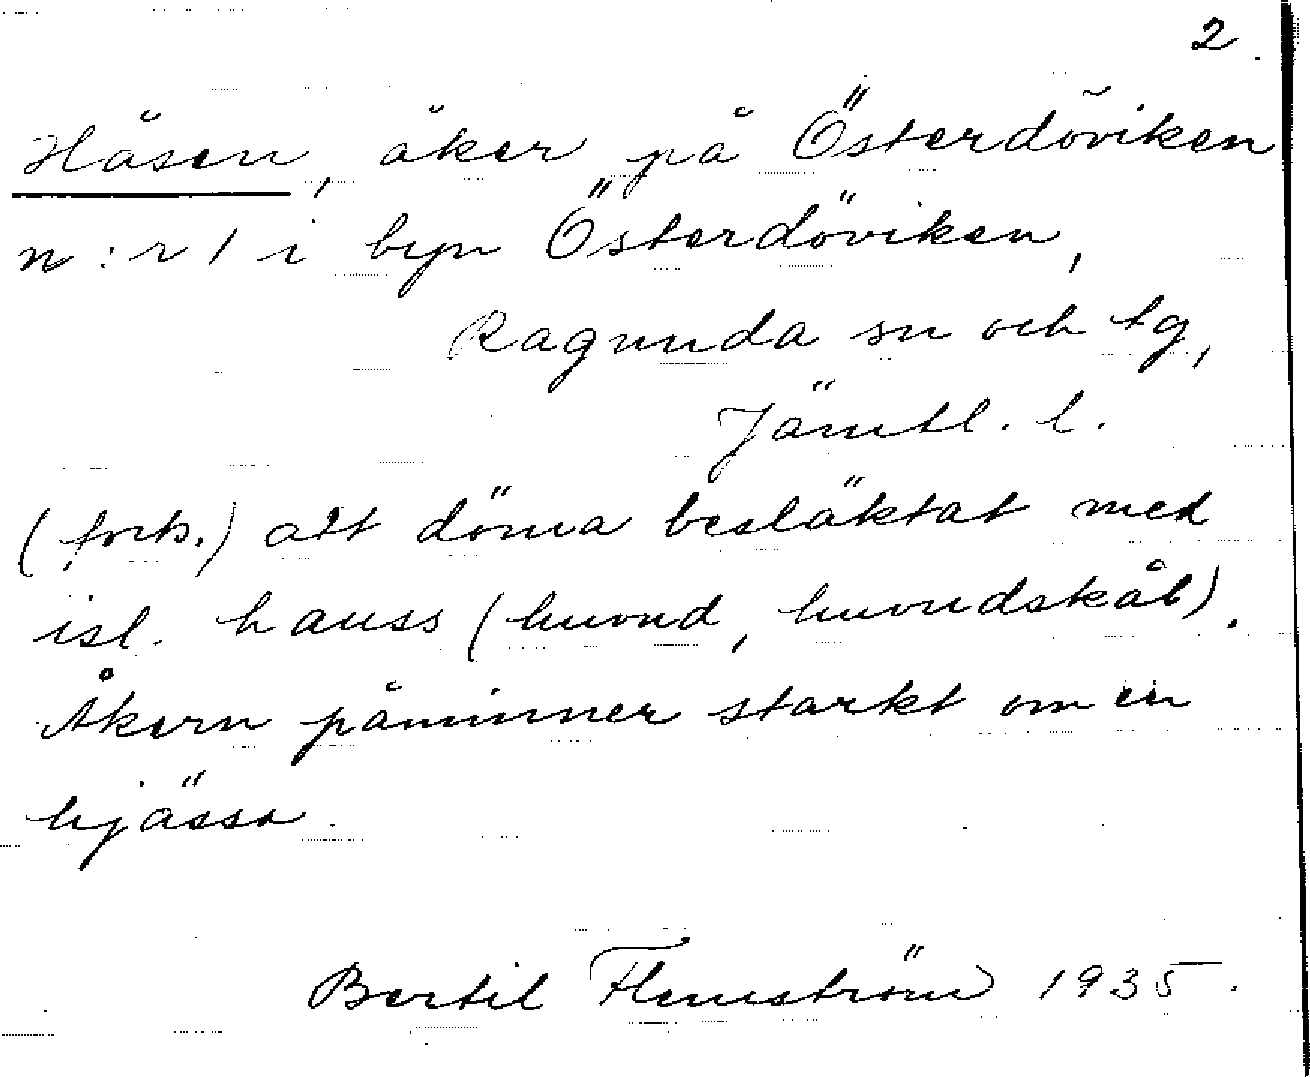 2.
Håsen, åker på Österdöviken
n:r 1 i byn Österdöviken,
Ragunda sn och tg,
Jämtl. l.
(forts.) att döma besläktat med
isl. hauss (huvud, huvudskål).
Åkern påminner starkt om en
hjässa.
Bertil Flemström 1935.